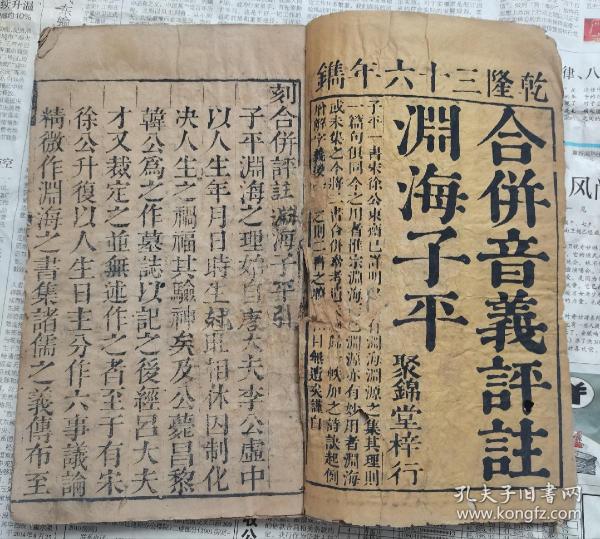 乾隆三十六年鐫
合併音義評註
淵海子平
聚錦堂梓行
子平一書宋徐公東齋已詳明
有淵海淵源之集其理則
一篇句俱同今之用者惟宗淵海
淵源亦有妙用者淵海
或未集之今將二書合併
詩訣起例
增解字義
之則二書之
日無遺矣謹白
刻合併評註淵海子平引
子平淵海之理始自唐大夫李公虛中
以人生年月日時生尅旺相休囚制化
决人生之禍福其驗神矣及公薨昌黎
韓公爲之作墓誌以記之後經呂大夫
才又裁定之並無述作之者至于有宋
徐公升復以人生日主分作六事議論
精微作淵海之書集諸儒之義傳布至
孔夫子旧书网
www.kongfz.com